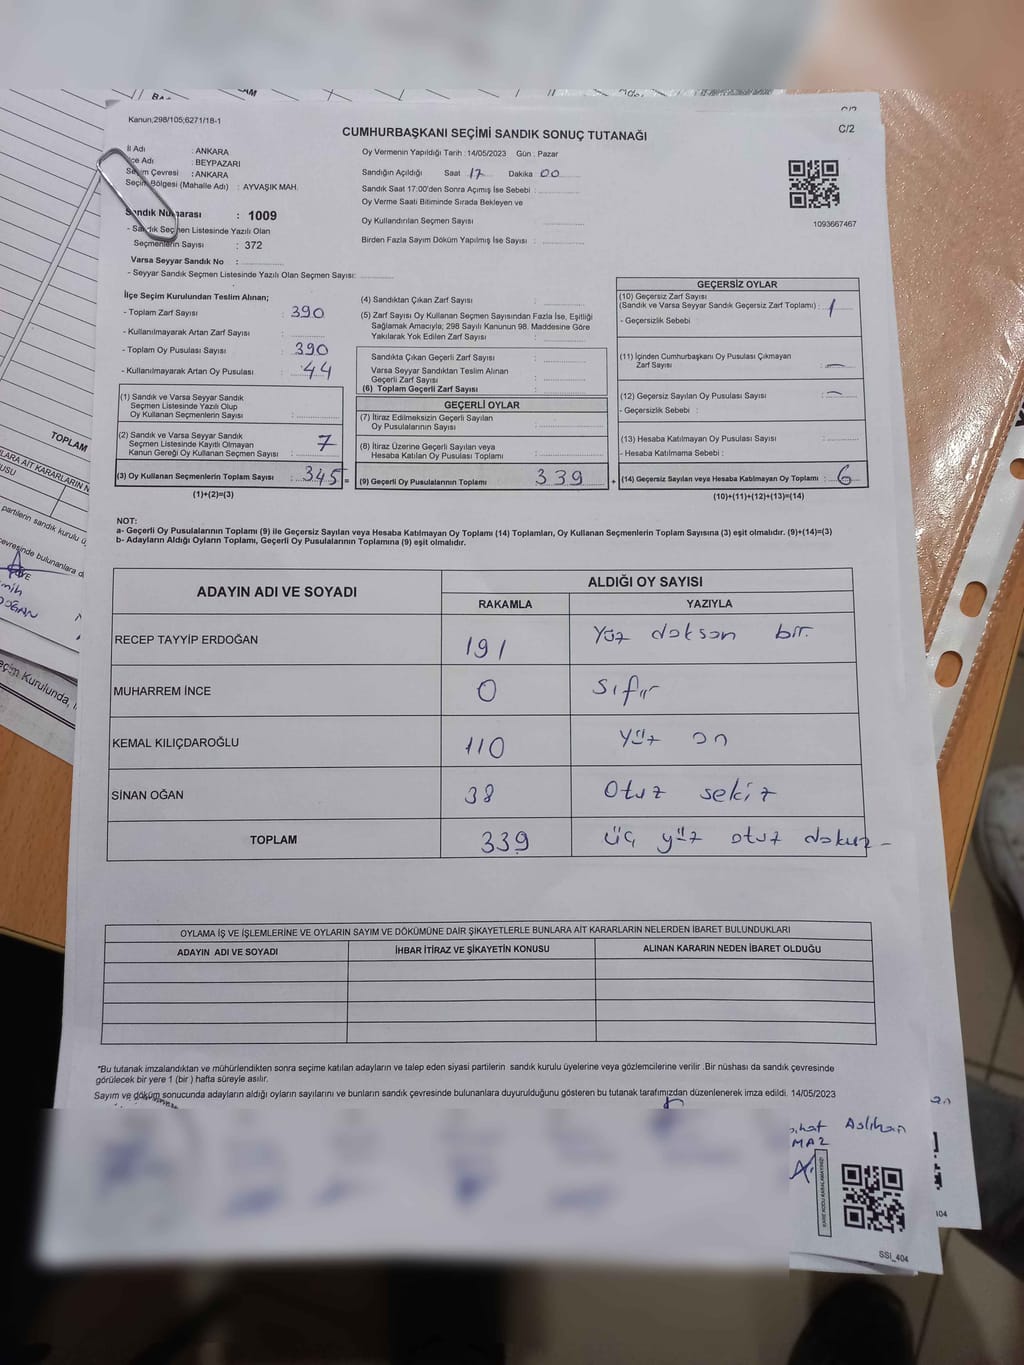 Kanun;298/105;6271/18-1
C/2
CUMHURBAŞKANI SEÇİMİ SANDIK SONUÇ TUTANAĞI
İl Adı : ANKARA
İlçe Adı : BEYPAZARI
Seçim Çevresi : ANKARA
Seçim Bölgesi (Mahalle Adı) : AYVAŞIK MAH.
Sandık Numarası : 1009
- Sandık Seçmen Listesinde Yazılı Olan
Seçmenlerin Sayısı : 372
Varsa Seyyar Sandık No :
- Seyyar Sandık Seçmen Listesinde Yazılı Olan Seçmen Sayısı:
Oy Vermenin Yapıldığı Tarih : 14/05/2023 Gün : Pazar
Sandığın Açıldığı Saat 17 Dakika 00
Sandık Saat 17:00'den Sonra Açımış İse Sebebi :
Oy Verme Saati Bitiminde Sırada Bekleyen ve
Oy Kullandırılan Seçmen Sayısı
Birden Fazla Sayım Döküm Yapılmış İse Sayısı :
1093667467
İlçe Seçim Kurulundan Teslim Alınan;
- Toplam Zarf Sayısı : 390
- Kullanılmayarak Artan Zarf Sayısı :
- Toplam Oy Pusulası Sayısı : 390
- Kullanılmayarak Artan Oy Pusulası : 44
(1) Sandık ve Varsa Seyyar Sandık
Seçmen Listesinde Yazılı Olup
Oy Kullanan Seçmenlerin Sayısı :
(2) Sandık ve Varsa Seyyar Sandık
Seçmen Listesinde Kayıtlı Olmayan
Kanun Gereği Oy Kullanan Seçmen Sayısı : 7
(3) Oy Kullanan Seçmenlerin Toplam Sayısı : 345 =
(1)+(2)=(3)
(4) Sandıktan Çıkan Zarf Sayısı :
(5) Zarf Sayısı Oy Kullanan Seçmen Sayısından Fazla İse, Eşitliği
Sağlamak Amacıyla; 298 Sayılı Kanunun 98. Maddesine Göre
Yakılarak Yok Edilen Zarf Sayısı :
Sandıkta Çıkan Geçerli Zarf Sayısı :
Varsa Seyyar Sandıktan Teslim Alınan
Geçerli Zarf Sayısı :
(6) Toplam Geçerli Zarf Sayısı :
GEÇERLİ OYLAR
(7) İtiraz Edilmeksizin Geçerli Sayılan
Oy Pusulalarının Sayısı :
(8) İtiraz Üzerine Geçerli Sayılan veya
Hesaba Katılan Oy Pusulası Toplamı :
(9) Geçerli Oy Pusulalarının Toplamı : 339 +
GEÇERSİZ OYLAR
(10) Geçersiz Zarf Sayısı
(Sandık ve Varsa Seyyar Sandık Geçersiz Zarf Toplamı) : 1
- Geçersizlik Sebebi :
(11) İçinden Cumhurbaşkanı Oy Pusulası Çıkmayan
Zarf Sayısı : —
(12) Geçersiz Sayılan Oy Pusulası Sayısı : —
- Geçersizlik Sebebi :
(13) Hesaba Katılmayan Oy Pusulası Sayısı :
- Hesaba Katılmama Sebebi :
(14) Geçersiz Sayılan veya Hesaba Katılmayan Oy Toplamı : 6
(10)+(11)+(12)+(13)=(14)
NOT:
a- Geçerli Oy Pusulalarının Toplamı (9) ile Geçersiz Sayılan veya Hesaba Katılmayan Oy Toplamı (14) Toplamları, Oy Kullanan Seçmenlerin Toplam Sayısına (3) eşit olmalıdır. (9)+(14)=(3)
b- Adayların Aldığı Oyların Toplamı, Geçerli Oy Pusulalarının Toplamına (9) eşit olmalıdır.
ADAYIN ADI VE SOYADI ALDIĞI OY SAYISI
RAKAMLA YAZIYLA
RECEP TAYYİP ERDOĞAN 191 Yüz doksan bir.
MUHARREM İNCE 0 Sıfır
KEMAL KILIÇDAROĞLU 110 Yüz on
SİNAN OĞAN 38 Otuz sekiz
TOPLAM 339 üç yüz otuz dokuz -
OYLAMA İŞ VE İŞLEMLERİNE VE OYLARIN SAYIM VE DÖKÜMÜNE DAİR ŞİKAYETLERLE BUNLARA AİT KARARLARIN NELERDEN İBARET BULUNDUKLARI
ADAYIN ADI VE SOYADI İHBAR İTİRAZ VE ŞİKAYETİN KONUSU ALINAN KARARIN NEDEN İBARET OLDUĞU
"Bu tutanak imzalandıktan ve mühürlendikten sonra seçime katılan adayların ve talep eden siyasi partilerin sandık kurulu üyelerine veya gözlemcilerine verilir .Bir nüshası da sandık çevresinde
görülecek bir yere 1 (bir ) hafta süreyle asılır.
Sayım ve döküm sonucunda adayların aldığı oyların sayılarını ve bunların sandık çevresinde bulunanlara duyurulduğunu gösteren bu tutanak tarafımızdan düzenlenerek imza edildi. 14/05/2023
Aslıhan
KARE KODU KARALAMAYINIZ!
SSI_404
TOPLAM